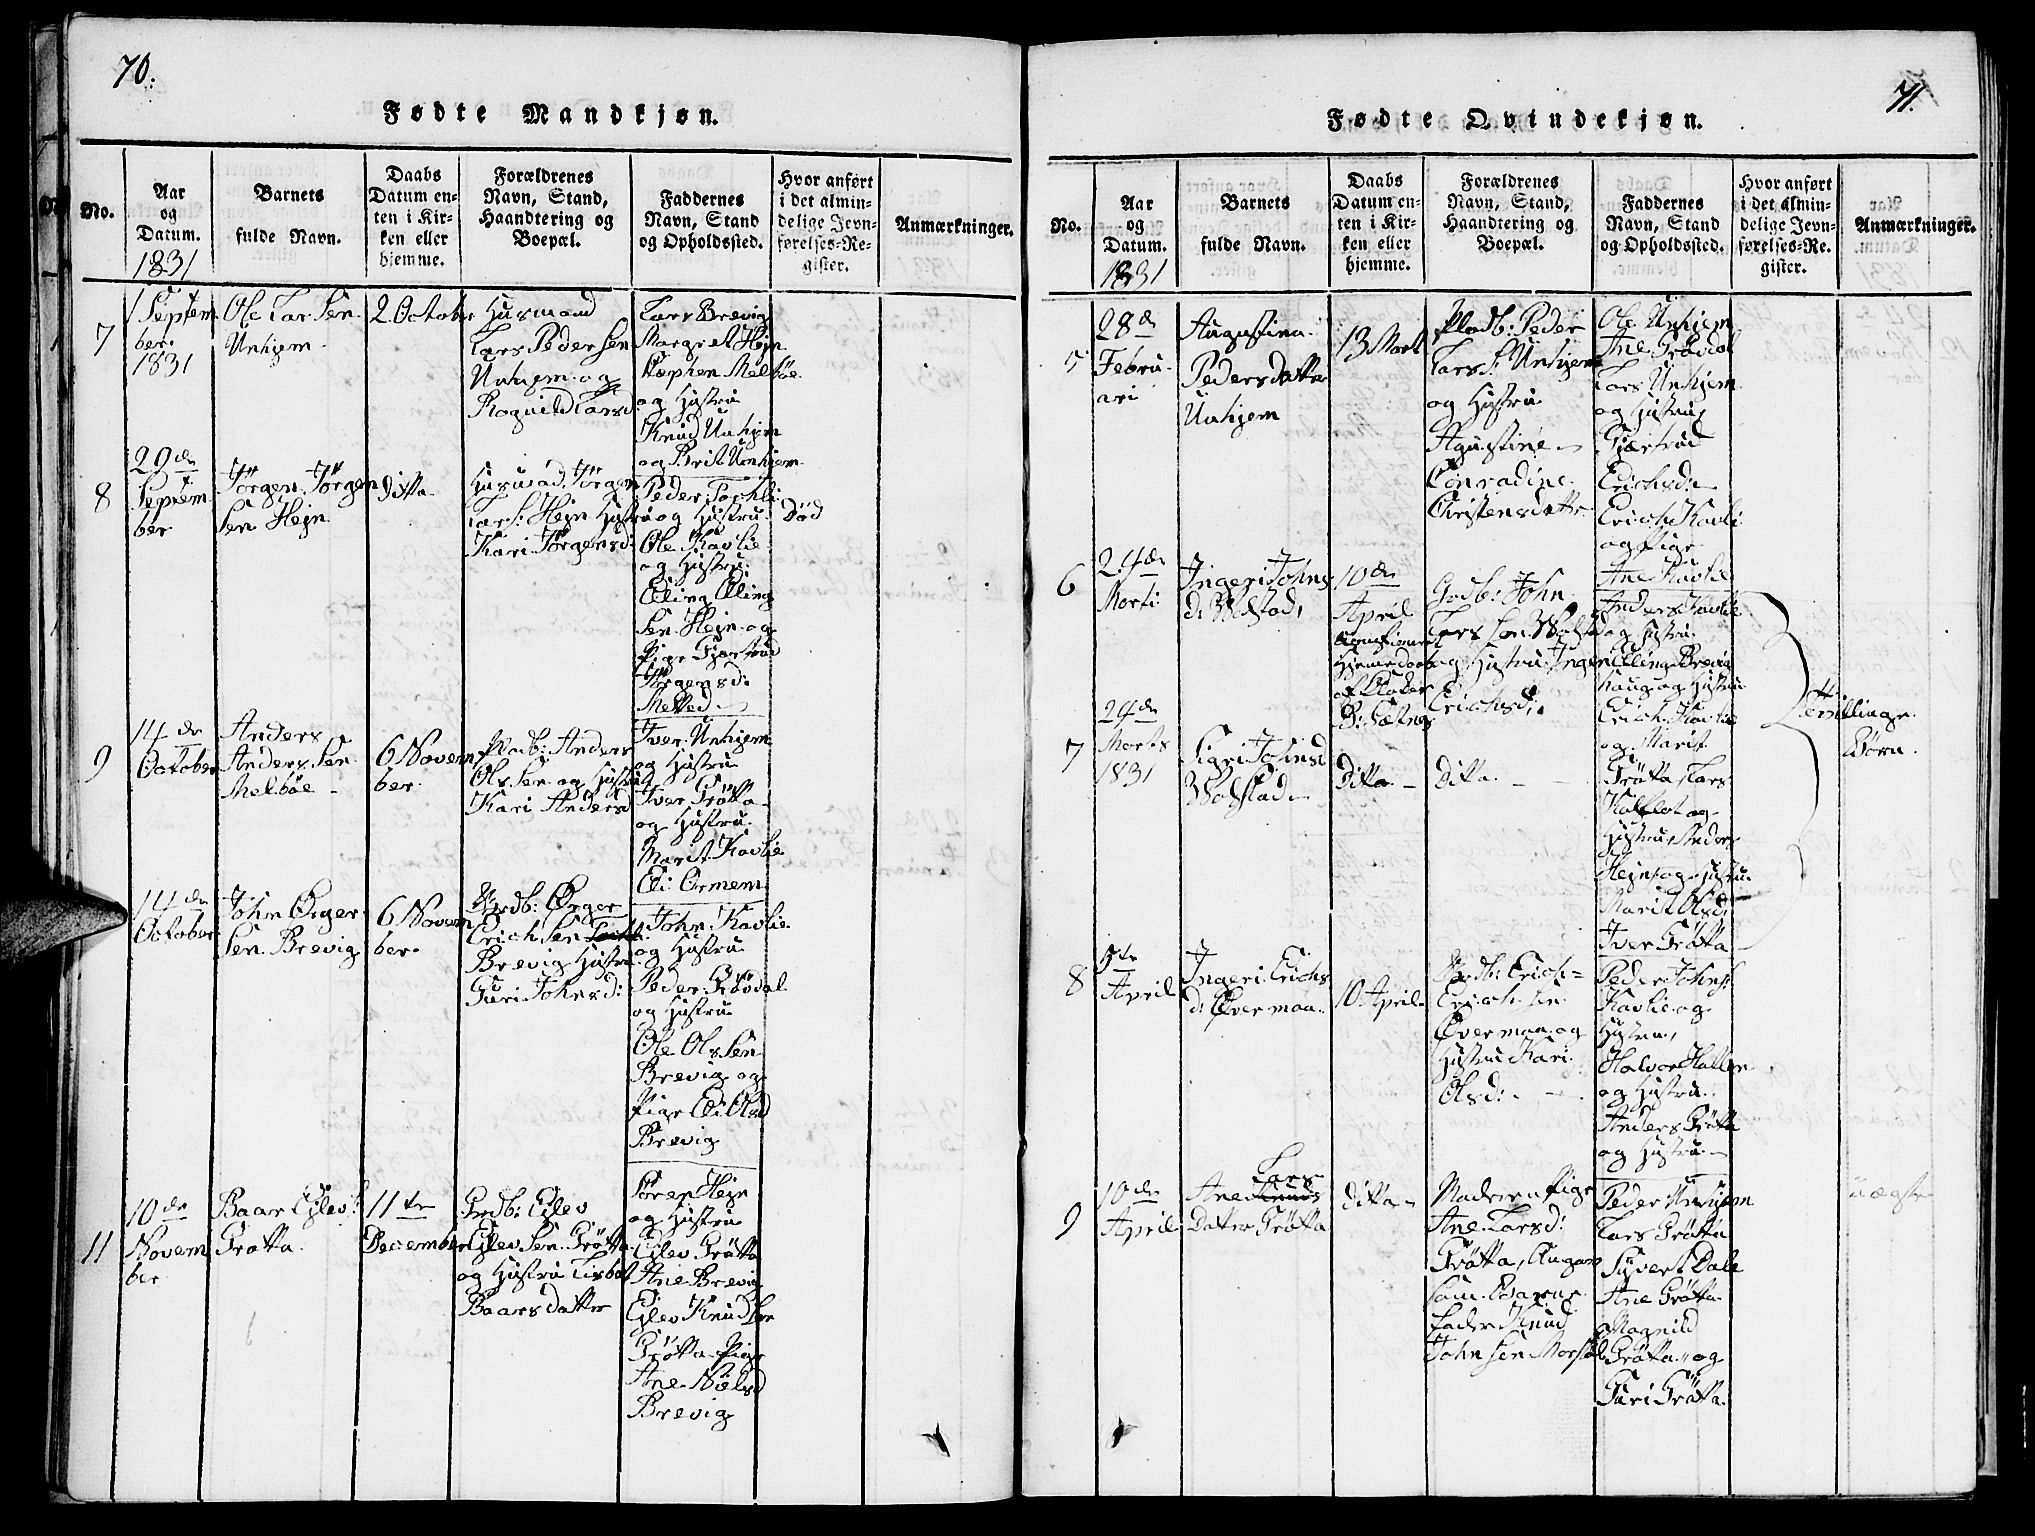 70.
Fødte Mandkjøn.
No.
Aar
og
Datum.
1831
Barnets
fulde Navn.
Daabs
Datum en-
ten i Kir-
ken eller
hjemme.
Forældrenes
Navn, Stand,
Haandtering og
Boepæl.
Faddernes
Navn, Stand
og Opholdssted.
Hvor anført
i det almin-
delige Jevn-
førelses-Re-
gister.
Anmærkninger.
7
1 Septem
ber.
1831
Ole Lar Sen
Unhjem
2 October
Husmand
Lars Peder Sen
Unhjem og
Ragnild Larsd
Lars Brevig
Margret Hejn
Stephen Melbøe
og Hustru
Knud Unhjem
og Brit Unhjem
8
29de
Septem
ber
Jörgen Jörgen
Sen Hejn
Ditto
Jörgen
Lars: Hejn Hustru
Kari Jörgensd:
Peder
og Hustru
Ole Kavlie
og Hustru
Elling Elling
Sen Hejn og
Pige Gjertrud
Jörgensd:
Død
9
14de
October
Anders
Anders Sen
Melbøe
6 Novem
ber
Gadb: Anders
Ols Sen og Hustru
Kari Andersd
Iver Unhjem
og Hustru
Iver Grötta
og Hustru
Marit Kavlie
Eli Ormem
14de
October
John Örger
Sen Brevig
6 Novem
ber
Gadb: Örger
Erich Sen
Brevig Hustru
Guri Johnsd:
John Kavlie
og Hustru
Peder Grövdal
og Hustru
Ole Ols Sen
Brevig og
Pige Eli Olsd
Brevig
11
10de
Novem
ber
Baar Eilevs:
Grøtta
11te
December
Gadb: Eilev
Eilev Sen Grötta
og Hustru Lisbet
Baarsdatter
Sören Hejn
og Hustru
Eilev Grötta
Ane Brevig
Eilev Knud Sen
Grötta Pige
Ane Nielsd
Brevig
71.
Fødte Qvindekjøn.
No.
Aar
og
Datum.
1831
Barnets
fulde Navn.
Daabs
Datum en-
ten i Kir-
ken eller
hjemme.
Forældrenes
Navn, Stand,
Haandtering og
Boepæl.
Faddernes
Navn, Stand
og Opholdssted.
Hvor anført
i det almin-
delige Jevn-
førelses-Re-
gister.
Anmærkninger.
5
28de
Febru-
ari
Augustina
Pedersdatter
Unhjem
13 Marti
Pladb: Peder
Lars S: Unhjem
og Hustru
Agustine
Conradine
Christensdatter
Ole Unhjem
Ane Grövdal
Lars Unhjem
og Hustru
Gjertrud
Erichsd
Erich Kavli
og Pige
Ane Kavlie
6
24de
Marti
Ingeri Johns
d: Wolstad
10de
April
Hjemmedaab
af Klokker
B: Sætnes
Gadb: John
Lars Sen Wolstad
og Hustru Ingeri
Erichsd:
Anders Kavlie
og Hustru
Elling Brevig
og Hustru
Erich Kavlie
og Marit
Grötta, Lars
og
Hustru, Anders
Hejn og Hustru
Marit Olsd
Iver Grötta
7
24de
Marts
1831
Sigri Johnsd
Wolstad
Ditto
Ditto
Tvillinge
Børn.
8
5te
April
Ingeri Erichs
d: Øvermaa
10 April
Gadb: Erich
Erich Sen
Øvermaa og
Hustru Kari
Olsd:
Peder Johns:
Kavlie og
Hustru,
Halvor Haller
og Hustru
Anders Grötta
og Hustru
9
10de
April
Lars
Ane Knuds
Datter Grøtta
Ditto
Pige
Ane Larsd:
Grötta, Angav
som Barne
fader Knud
John Sen Morstøl
Peder Unhjem
Lars Grötta
Syvert Dale
Ane Grötta
Magnild
Grötta og
Guri Grötta
uægte